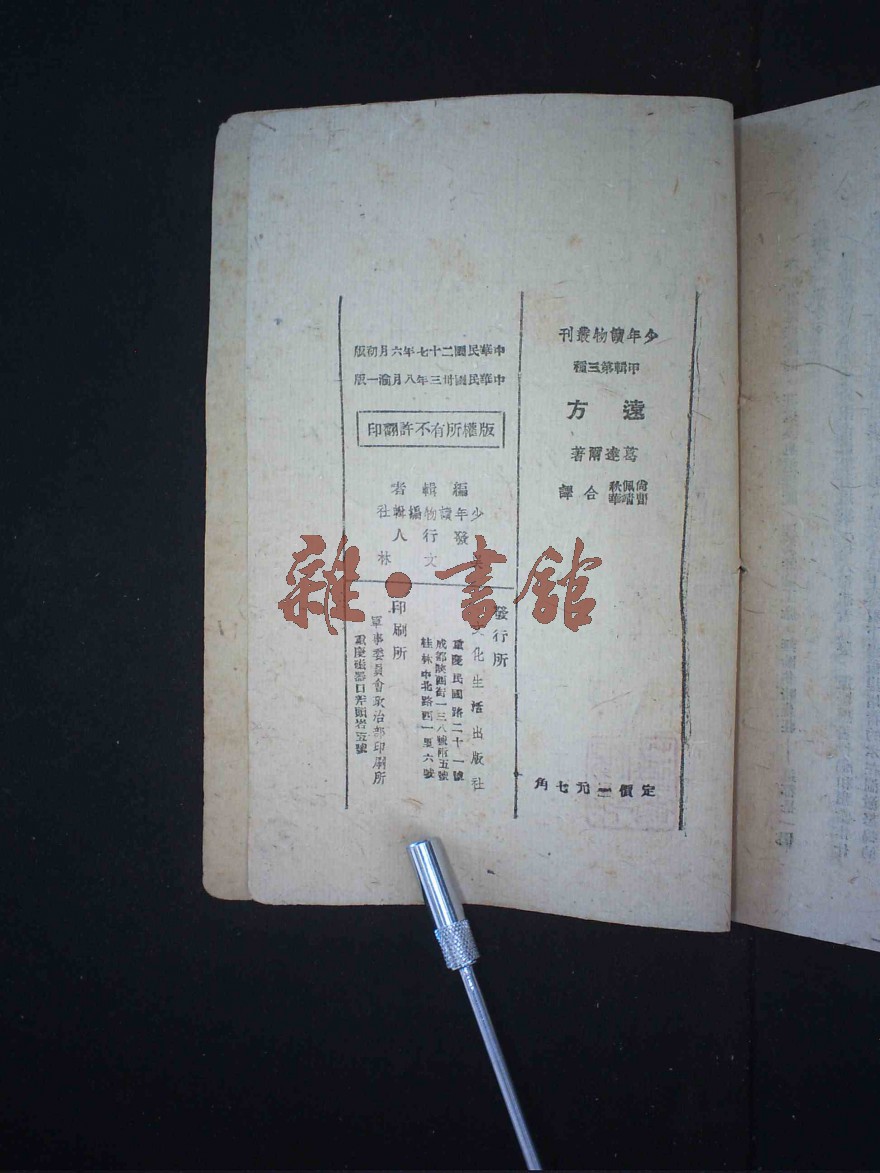 少年讀物叢刊
甲輯第三種
遠方
葛達爾著
尙佩秋
曹靖華
合譯
定價元七角
中華民國二十七年六月初版
中華民國卅三年八月渝一版
版權所有不許翻印
編輯者
少年讀物編輯社
發行人
文林
發行所
文化生活出版社
重慶民國路二十一號
成都陝西街一三八號附五號
桂林中北路西一里六號
印刷所
軍事委員會政治部印刷所
重慶磁器口頭岩五號
雜·書館